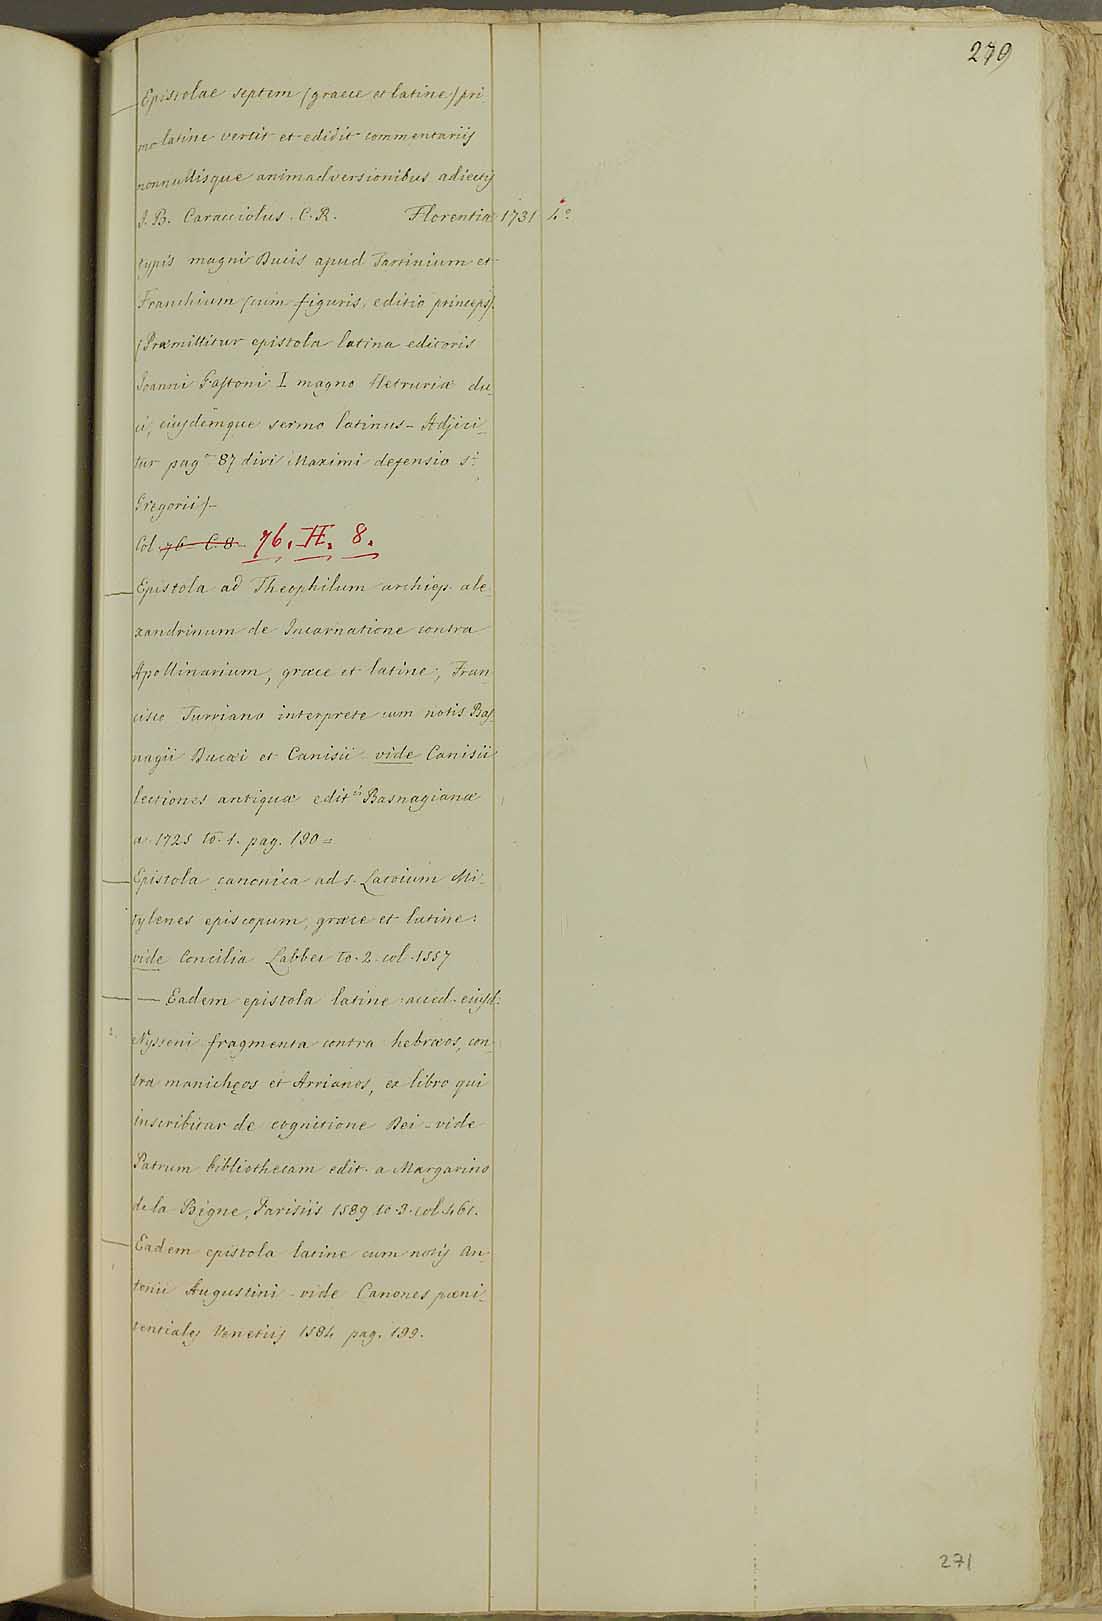 279
Epistolae septem (graece et latine) pri
mo latine vertit et edidit commentariis
nonnullisque animadversionibus adiectis
J. B. Caracciolus. C. R. Florentiæ 1731 4.º
typis magni Ducis apud Tartinium et
Franchium (cum figuris, editio princeps).
(Præmittitur epistola latina editoris
Joanni Gastoni I magno Hetruriæ du_
ci, eiusdemque sermo latinus - Adjici_
tur pag. 87 divi Maximi defensio S.i
Gregorii) -
Col. 76 C. 8. 76. H. 8.
Epistola ad Theophilum archiep. ale_
xandrinum de Incarnatione contra
Apollinarium, græce et latine, Fran_
cisco Turriano interprete cum notis Bas_
nagii Ducæi et Canisii vide Canisii
lectiones antiquæ edit.is Basnagianæ
a. 1725 to. 1. pag. 190 =
Epistola canonica ad s. Latoium Mi_
tylenes episcopum, græce et latine:
vide Concilia Labbei to. 2. col. 1557
— Eadem epistola latine: acced. eiusd:
Nysseni fragmenta contra hebræos, con_
tra manichęos et Arrianos, ex libro qui
inscribitur de cognitione Dei - vide
Patrum bibliothecam edit. a Margarino
de la Bigne, Parisiis 1589 to. 3. col. 461.
Eadem epistola latine cum notis An_
tonii Augustini - vide Canones pœni_
tentiales Venetiis 1584 pag. 199.
271